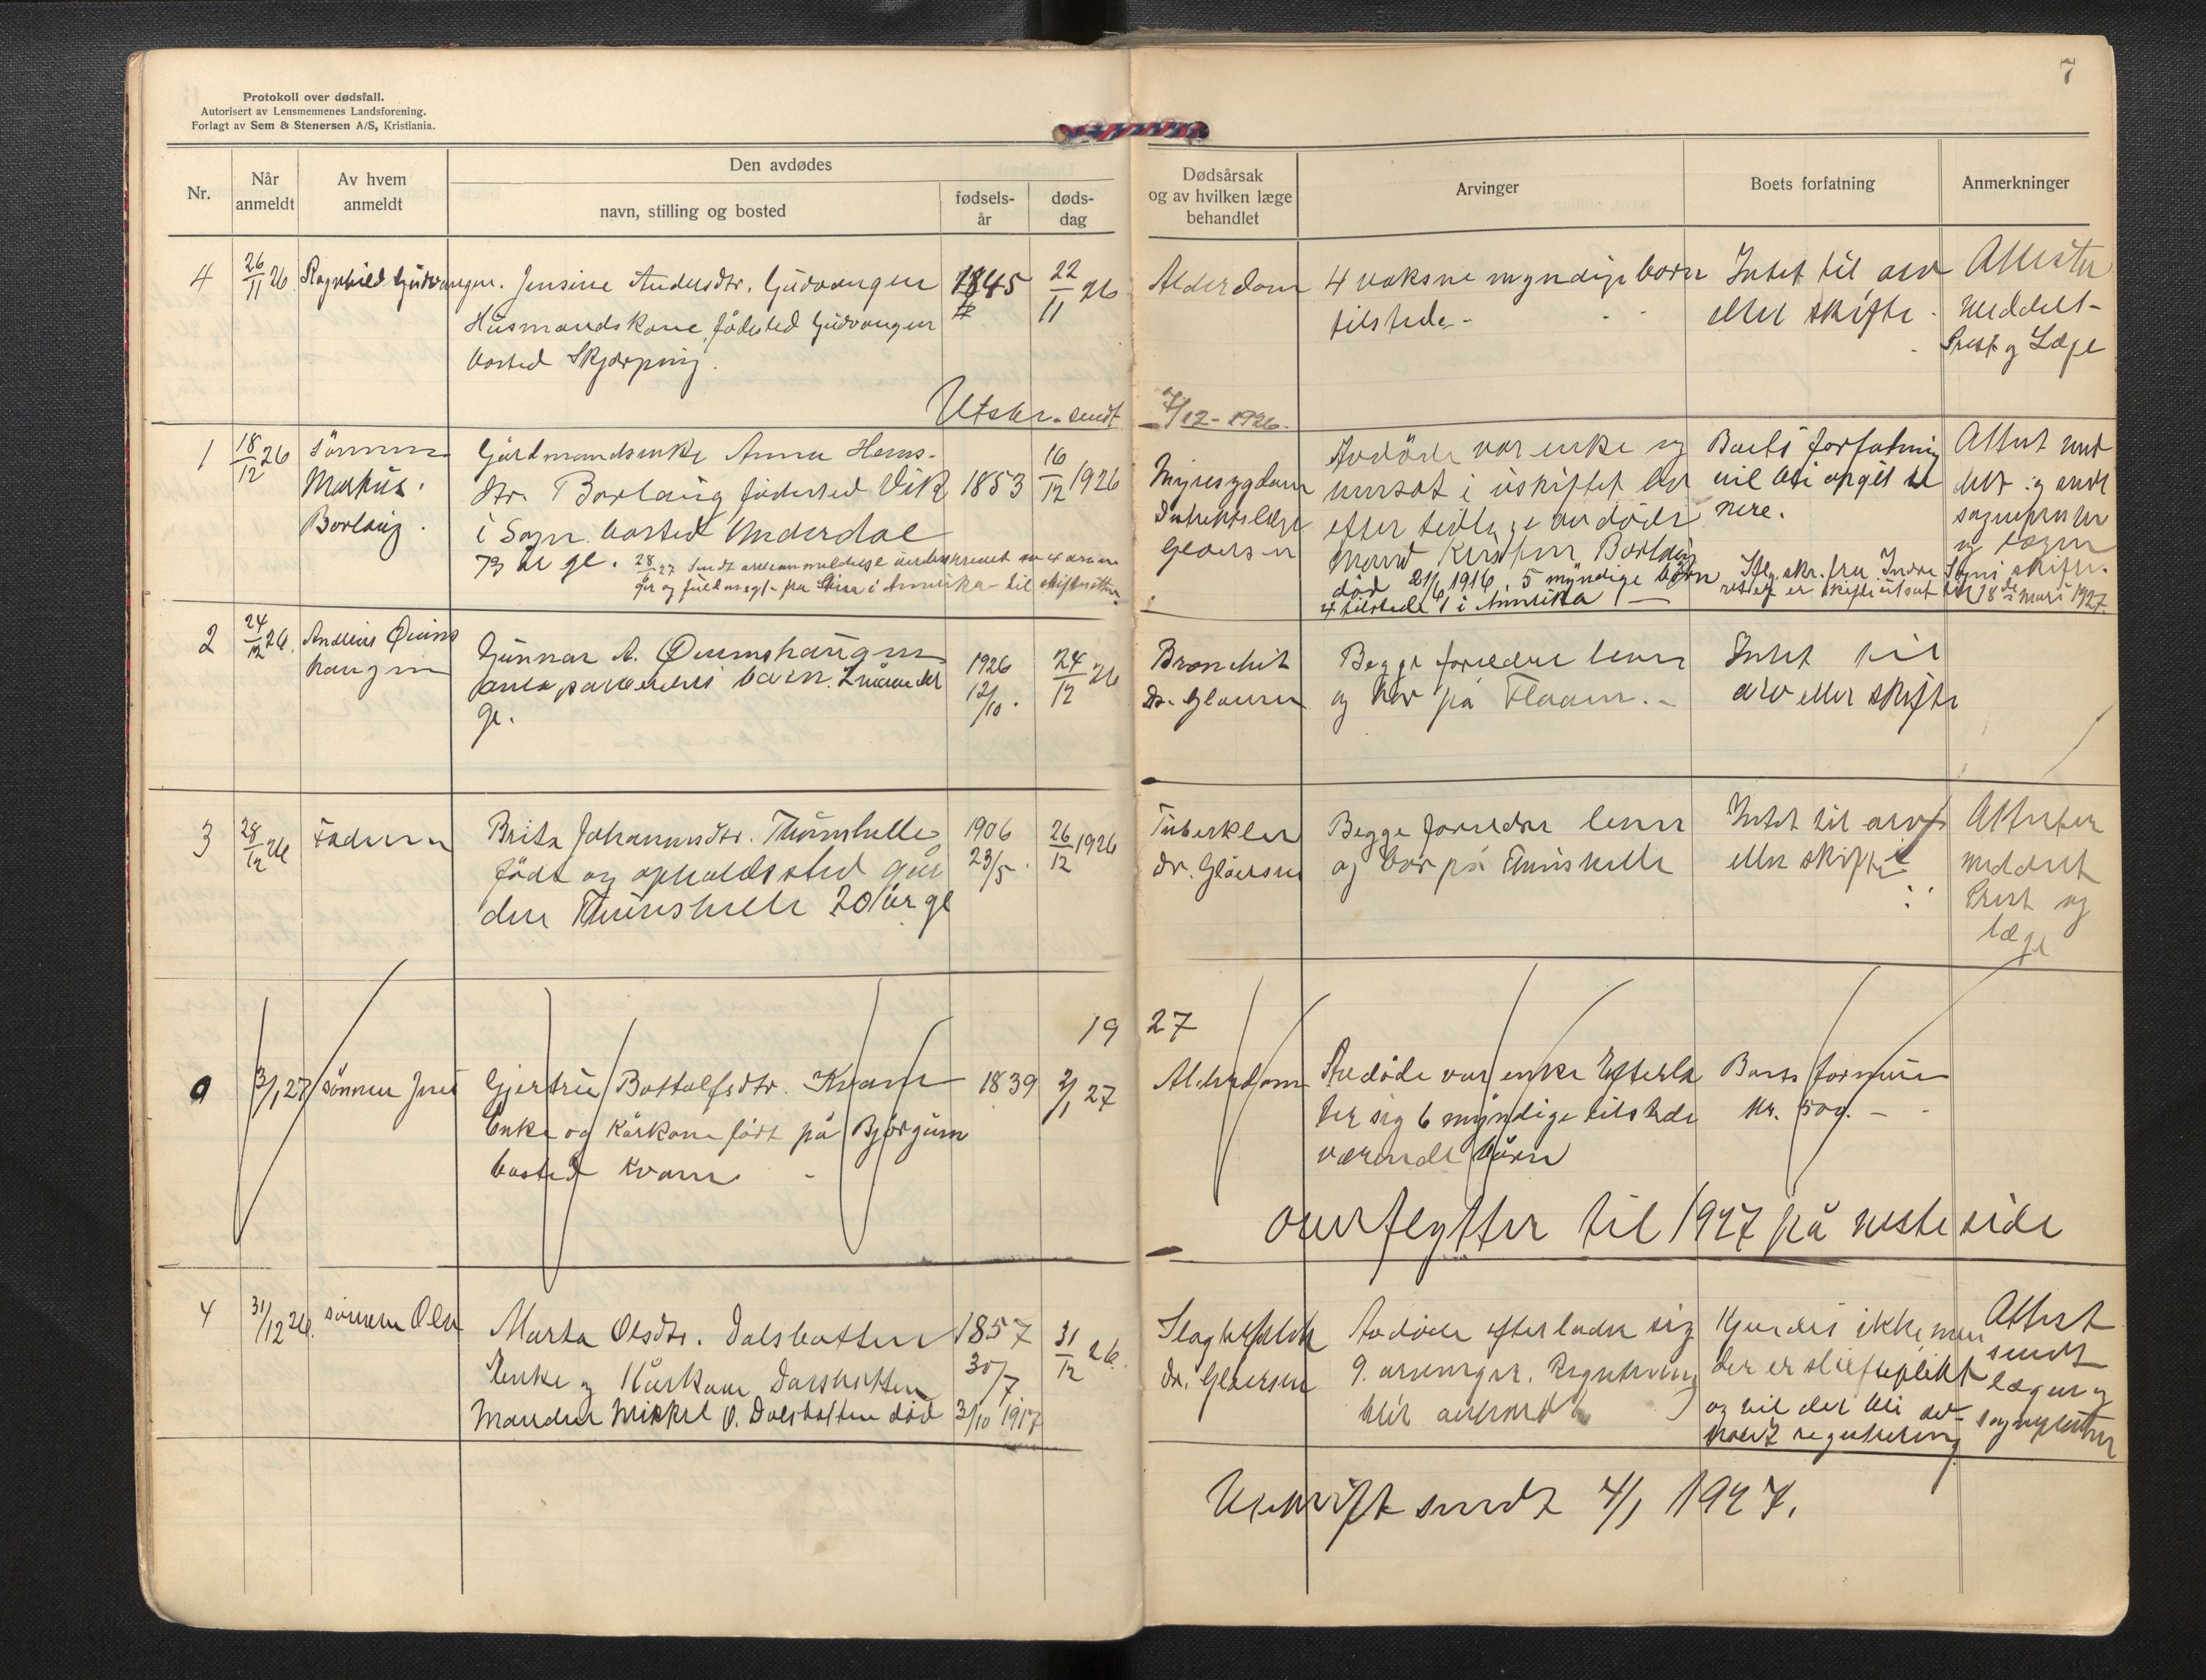 7
Protokoll over dødsfall.
Autorisert av Lensmennenes Landsforening.
Forlagt av Sem & Stenersen A/S, Kristiania.
Nr.
Når anmeldt
Av hvem anmeldt
Den avdødes
navn, stilling og bosted
fødsels-år
døds-dag
Dødsårsak og av hvilken læge behandlet
Arvinger
Boets forfatning
Anmerkninger
4
26/11 26
Ragnhild Gudvangen.
Jensine Andersdtr. Gudvangen
Husmandskone, födested Gudvangen
bosted Skjerping.
1845
22/11 26
Alderdom
4 voksne myndige born
tilstede-
Intet til arv
eller skifte
Attester
meddelt-
Prest og Læge
Utskr. sendt 7/12-1926.
1
18/12 26
Sönnen
Markus
Borlaug.
Gårdmandsenke Anna Hans-
dtr. Borlaug födested Vik
i Sogn. bosted Underdal
73 år gl.
28/27 Sendt
fra i Amerika - til skifteretten
1853
16/12 1926
Nyresygdom
Distriktslæge
Gloersen
Avdöde var enke og
hensat i uskiftet bo
efter avdöde
mand Borlaug
död 21/6 1916. 5 myndige börn
4 tilstede 1 i Amerika
Boets forfatning
vil bli opgit se
nere.
Attest med
delt og sendt
sogneprest
og lægen
skr. fra Indre Sogn skifte-
er skifte utsat 18de mars 1927.
2
24/12 26.
Andreas
haugen
Gunnar A.
barn. 2 måneder
gl.
1926
12/10.
24/12 26
Bronchit
Dr. Gloersen
Begge foreldre lever
og bor på Flaam. -
Intet til
arv eller skifte
3
28/12 26
Faderen
Brita Johannesdtr. Thunshelle
födt og opholdssted går
den Thunshelle 20 år gl
1906
23/5.
26/12 1926
Tuberkler
Dr. Gloersen
Begge foreldre lever
og bor på Thunshelle
Intet til arv
eller skifte
Attester
meddelt
Prest og
læge
19 27
3/1 27
Sönnen Jens
Gjertrud Bottolfsdtr. Kvam
Enke og Kårkone födt på Bjørgum
bosted Kvam
1839
2/1 27
Alderdom
Avdöde var enke Efterla
ter sig 6 myndige tilstede
værende börn
Boets formue
kr. 500. -
overflytter til 1927 på neste side
4
31/12 26.
sönnen Ole
Marta Olsdtr. Dalsbotten
Enke og Kårkone Dalsbotten
Manden Mikkel O. Dalsbotten död 3/10 1917
1857
30/7
31/12 26.
Slagtilfelde
Dr. Gloersen
Avdöde efterlader sig
9. arvinger. Registrering
blir avholdt
Kjendes ikke, men
der er skifteplikt
og vil der bli av-
holdt registrering
Attest
sendt
lægen og
sognepresten
Utskrift sendt 4/1 1927.